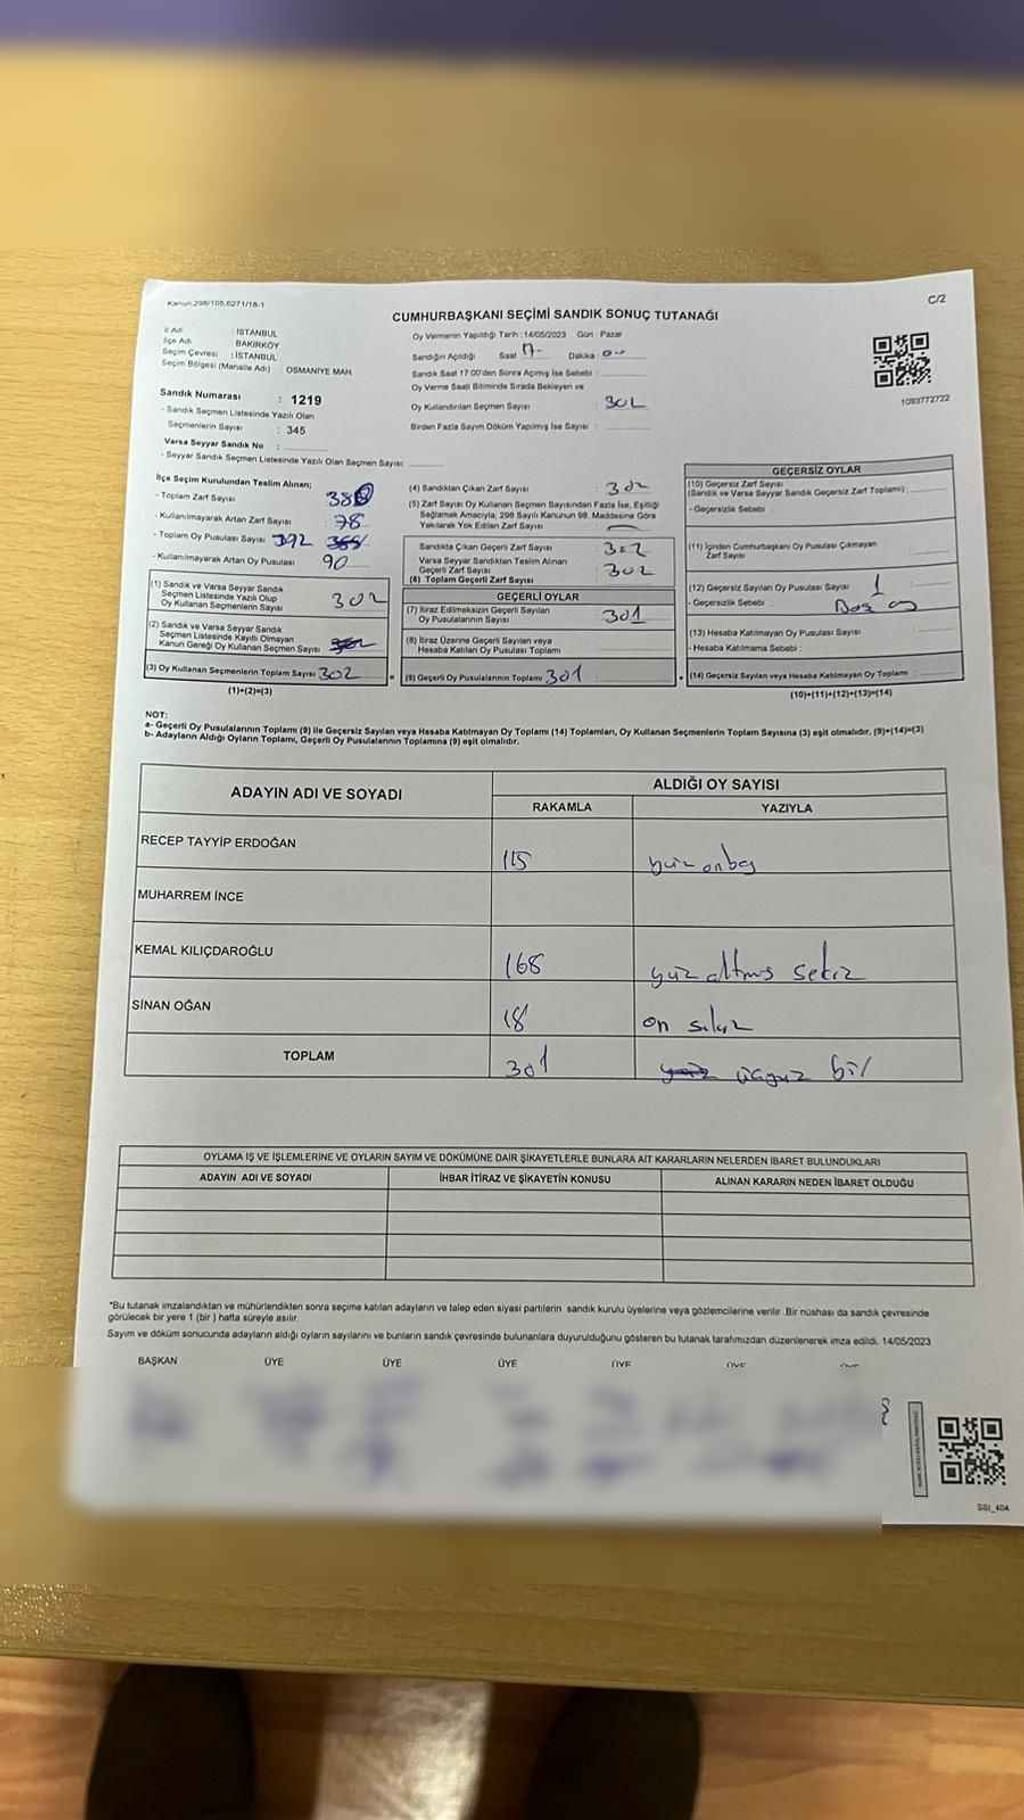 Kanun 298/105,6271/18-1
C/2
CUMHURBAŞKANI SEÇİMİ SANDIK SONUÇ TUTANAĞI
İl Adı : İSTANBUL
İlçe Adı BAKIRKÖY
Seçim Çevresi : İSTANBUL
Seçim Bölgesi (Mahalle Adı) : OSMANİYE MAH.
Sandık Numarası : 1219
- Sandık Seçmen Listesinde Yazılı Olan
Seçmenlerin Sayısı : 345
Varsa Seyyar Sandık No :
- Seyyar Sandık Seçmen Listesinde Yazılı Olan Seçmen Sayısı
Oy Vermenin Yapıldığı Tarih : 14/05/2023 Gün : Pazar
Sandığın Açıldığı Saat 17 Dakika 00
Sandık Saat 17.00'den Sonra Açılmış İse Sebebi :
Oy Verme Saati Bitiminde Sırada Bekleyen ve
Oy Kullandırılan Seçmen Sayısı : 302
Birden Fazla Sayım Döküm Yapılmış İse Sayısı :
1093772722
İlçe Seçim Kurulundan Teslim Alınan;
- Toplam Zarf Sayısı 380
- Kullanılmayarak Artan Zarf Sayısı 78
- Toplam Oy Pusulası Sayısı 392
- Kullanılmayarak Artan Oy Pusulası 90
(1) Sandık ve Varsa Seyyar Sandık
Seçmen Listesinde Yazılı Olup
Oy Kullanan Seçmenlerin Sayısı 302
(2) Sandık ve Varsa Seyyar Sandık
Seçmen Listesinde Kayıtlı Olmayan
Kanun Gereği Oy Kullanan Seçmen Sayısı
(3) Oy Kullanan Seçmenlerin Toplam Sayısı 302
(1)+(2)=(3)
(4) Sandıktan Çıkan Zarf Sayısı 302
(5) Zarf Sayısı Oy Kullanan Seçmen Sayısından Fazla İse, Eşitliği
Sağlamak Amacıyla, 298 Sayılı Kanunun 98. Maddesine Göre
Yakılarak Yok Edilen Zarf Sayısı
Sandıkta Çıkan Geçerli Zarf Sayısı 302
Varsa Seyyar Sandıktan Teslim Alınan
Geçerli Zarf Sayısı 302
(6) Toplam Geçerli Zarf Sayısı
GEÇERLİ OYLAR
(7) İtiraz Edilmeksizin Geçerli Sayılan
Oy Pusulalarının Sayısı 301
(8) İtiraz Üzerine Geçerli Sayılan veya
Hesaba Katılan Oy Pusulası Toplamı
(9) Geçerli Oy Pusulalarının Toplamı 301
GEÇERSİZ OYLAR
(10) Geçersiz Zarf Sayısı
(Sandık ve Varsa Seyyar Sandık Geçersiz Zarf Toplamı) :
- Geçersizlik Sebebi :
(11) İçinden Cumhurbaşkanı Oy Pusulası Çıkmayan
Zarf Sayısı
(12) Geçersiz Sayılan Oy Pusulası Sayısı 1
- Geçersizlik Sebebi : Boş oy
(13) Hesaba Katılmayan Oy Pusulası Sayısı
- Hesaba Katılmama Sebebi :
(14) Geçersiz Sayılan veya Hesaba Katılmayan Oy Toplamı
(10)+(11)+(12)+(13)=(14)
NOT:
a- Geçerli Oy Pusulalarının Toplamı (9) ile Geçersiz Sayılan veya Hesaba Katılmayan Oy Toplamı (14) Toplamları, Oy Kullanan Seçmenlerin Toplam Sayısına (3) eşit olmalıdır. (9)+(14)=(3)
b- Adayların Aldığı Oyların Toplamı, Geçerli Oy Pusulalarının Toplamına (9) eşit olmalıdır.
ADAYIN ADI VE SOYADI ALDIĞI OY SAYISI
RAKAMLA YAZIYLA
RECEP TAYYİP ERDOĞAN 115 yüz onbeş
MUHARREM İNCE
KEMAL KILIÇDAROĞLU 168 yüz altmış sekiz
SİNAN OĞAN 18 on sekiz
TOPLAM 301 üçyüz bir
OYLAMA İŞ VE İŞLEMLERİNE VE OYLARIN SAYIM VE DÖKÜMÜNE DAİR ŞİKAYETLERLE BUNLARA AİT KARARLARIN NELERDEN İBARET BULUNDUKLARI
ADAYIN ADI VE SOYADI İHBAR İTİRAZ VE ŞİKAYETİN KONUSU ALINAN KARARIN NEDEN İBARET OLDUĞU
*Bu tutanak imzalandıktan ve mühürlendikten sonra seçime katılan adayların ve talep eden siyasi partilerin sandık kurulu üyelerine veya gözlemcilerine verilir. Bir nüshası da sandık çevresinde
görülecek bir yere 1 (bir) hafta süreyle asılır.
Sayım ve döküm sonucunda adayların aldığı oyların sayılarını ve bunların sandık çevresinde bulunanlara duyurulduğunu gösteren bu tutanak tarafımızdan düzenlenerek imza edildi. 14/05/2023
BAŞKAN ÜYE ÜYE ÜYE ÜYE ÜYE
SSI_40A